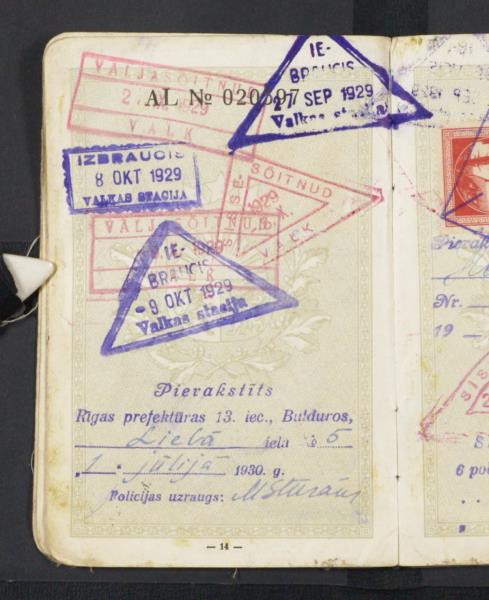 VÄLJASÕITNUD
VALK
AL № 020597
IE-
BRAUCIS
27 SEP 1929
Valkas stacija
IZBRAUCIS
8 OKT 1929
VALKAS STACIJA
SISSE-
SÕITNUD
1929
VALK
VÄLJASÕITNUD
1929
IE-
BRAUCIS
-9 OKT 1929
Valkas stacija
Pievakstīts
Rīgas prefektūras 13. iec., Bulduros,
Lielā ielā № 5
„1." jūlijā 1930. g.
Policijas uzraugs:
— 14 —
Nr.
19
6